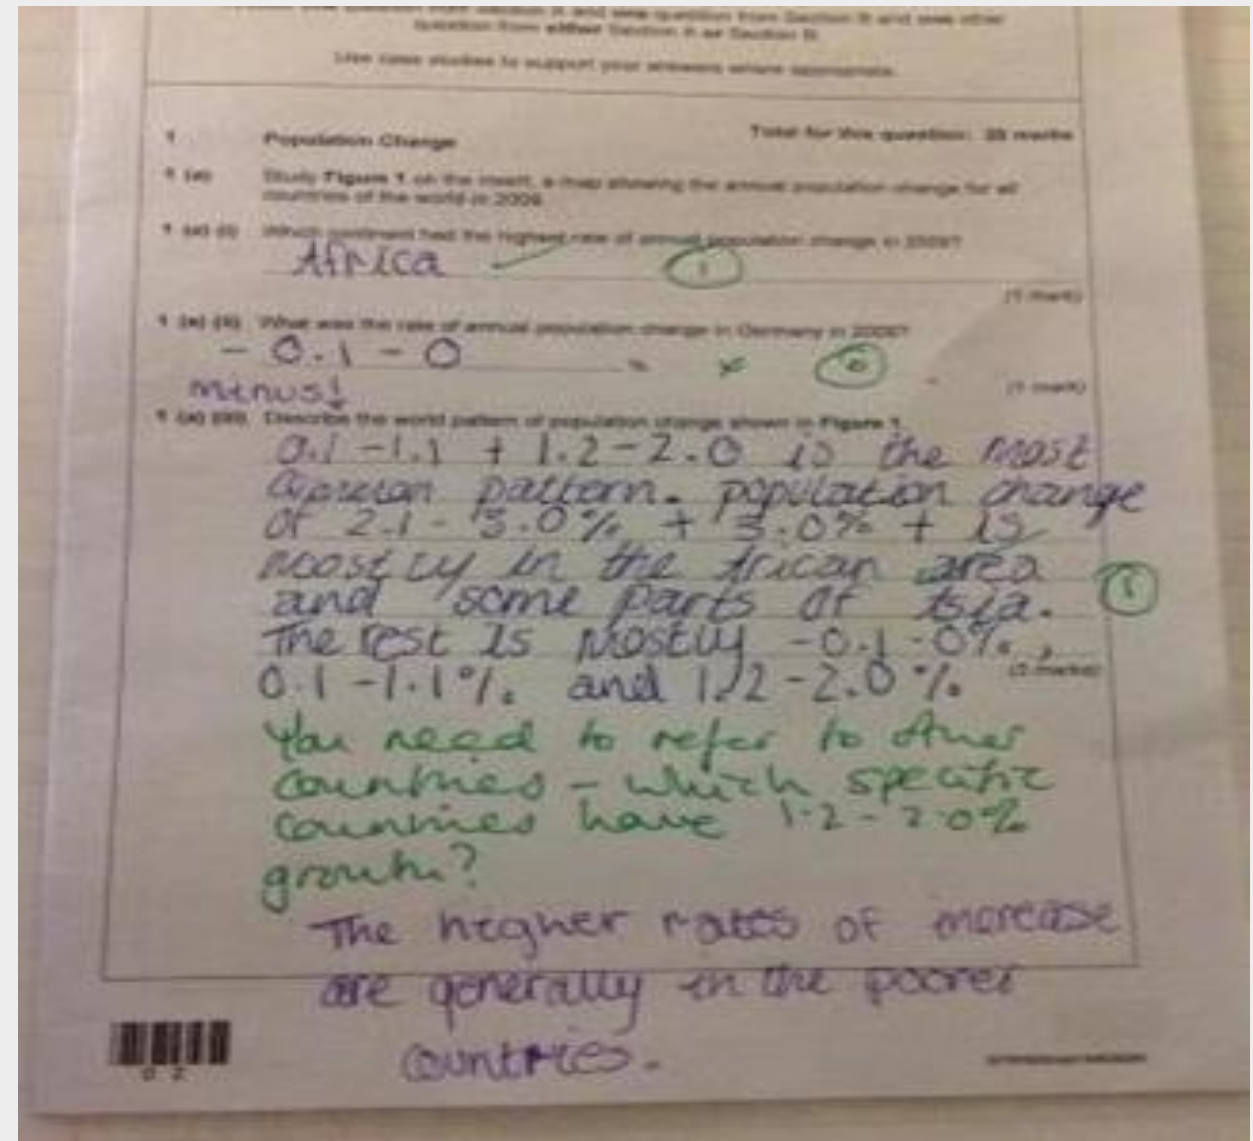 question from either Section A or Section B.
Use case studies to support your answers where appropriate.
1 Population Change Total for this question: 25 marks
1 (a) Study Figure 1 on the insert, a map showing the annual population change for all
countries of the world in 2009.
1 (a) (i) Which continent had the highest rate of annual population change in 2009?
Africa ✓ 1
(1 mark)
1 (a) (ii) What was the rate of annual population change in Germany in 2009?
- 0.1 - 0 % × 0
minus! (1 mark)
1 (a) (iii) Describe the world pattern of population change shown in Figure 1.
0.1 - 1.1 + 1.2 - 2.0 is the most
pattern. population change
of 2.1 - 3.0% + 3.0% + is
mostly in the African area
and some parts of Asia. 1
The rest is mostly -0.1 - 0%,
0.1 - 1.1%. and 1.2 - 2.0%.
You need to refer to other
countries - which specific
countries have 1.2 - 2.0%
growth?
The higher rates of increase
are generally in the poorer
countries.
0 2